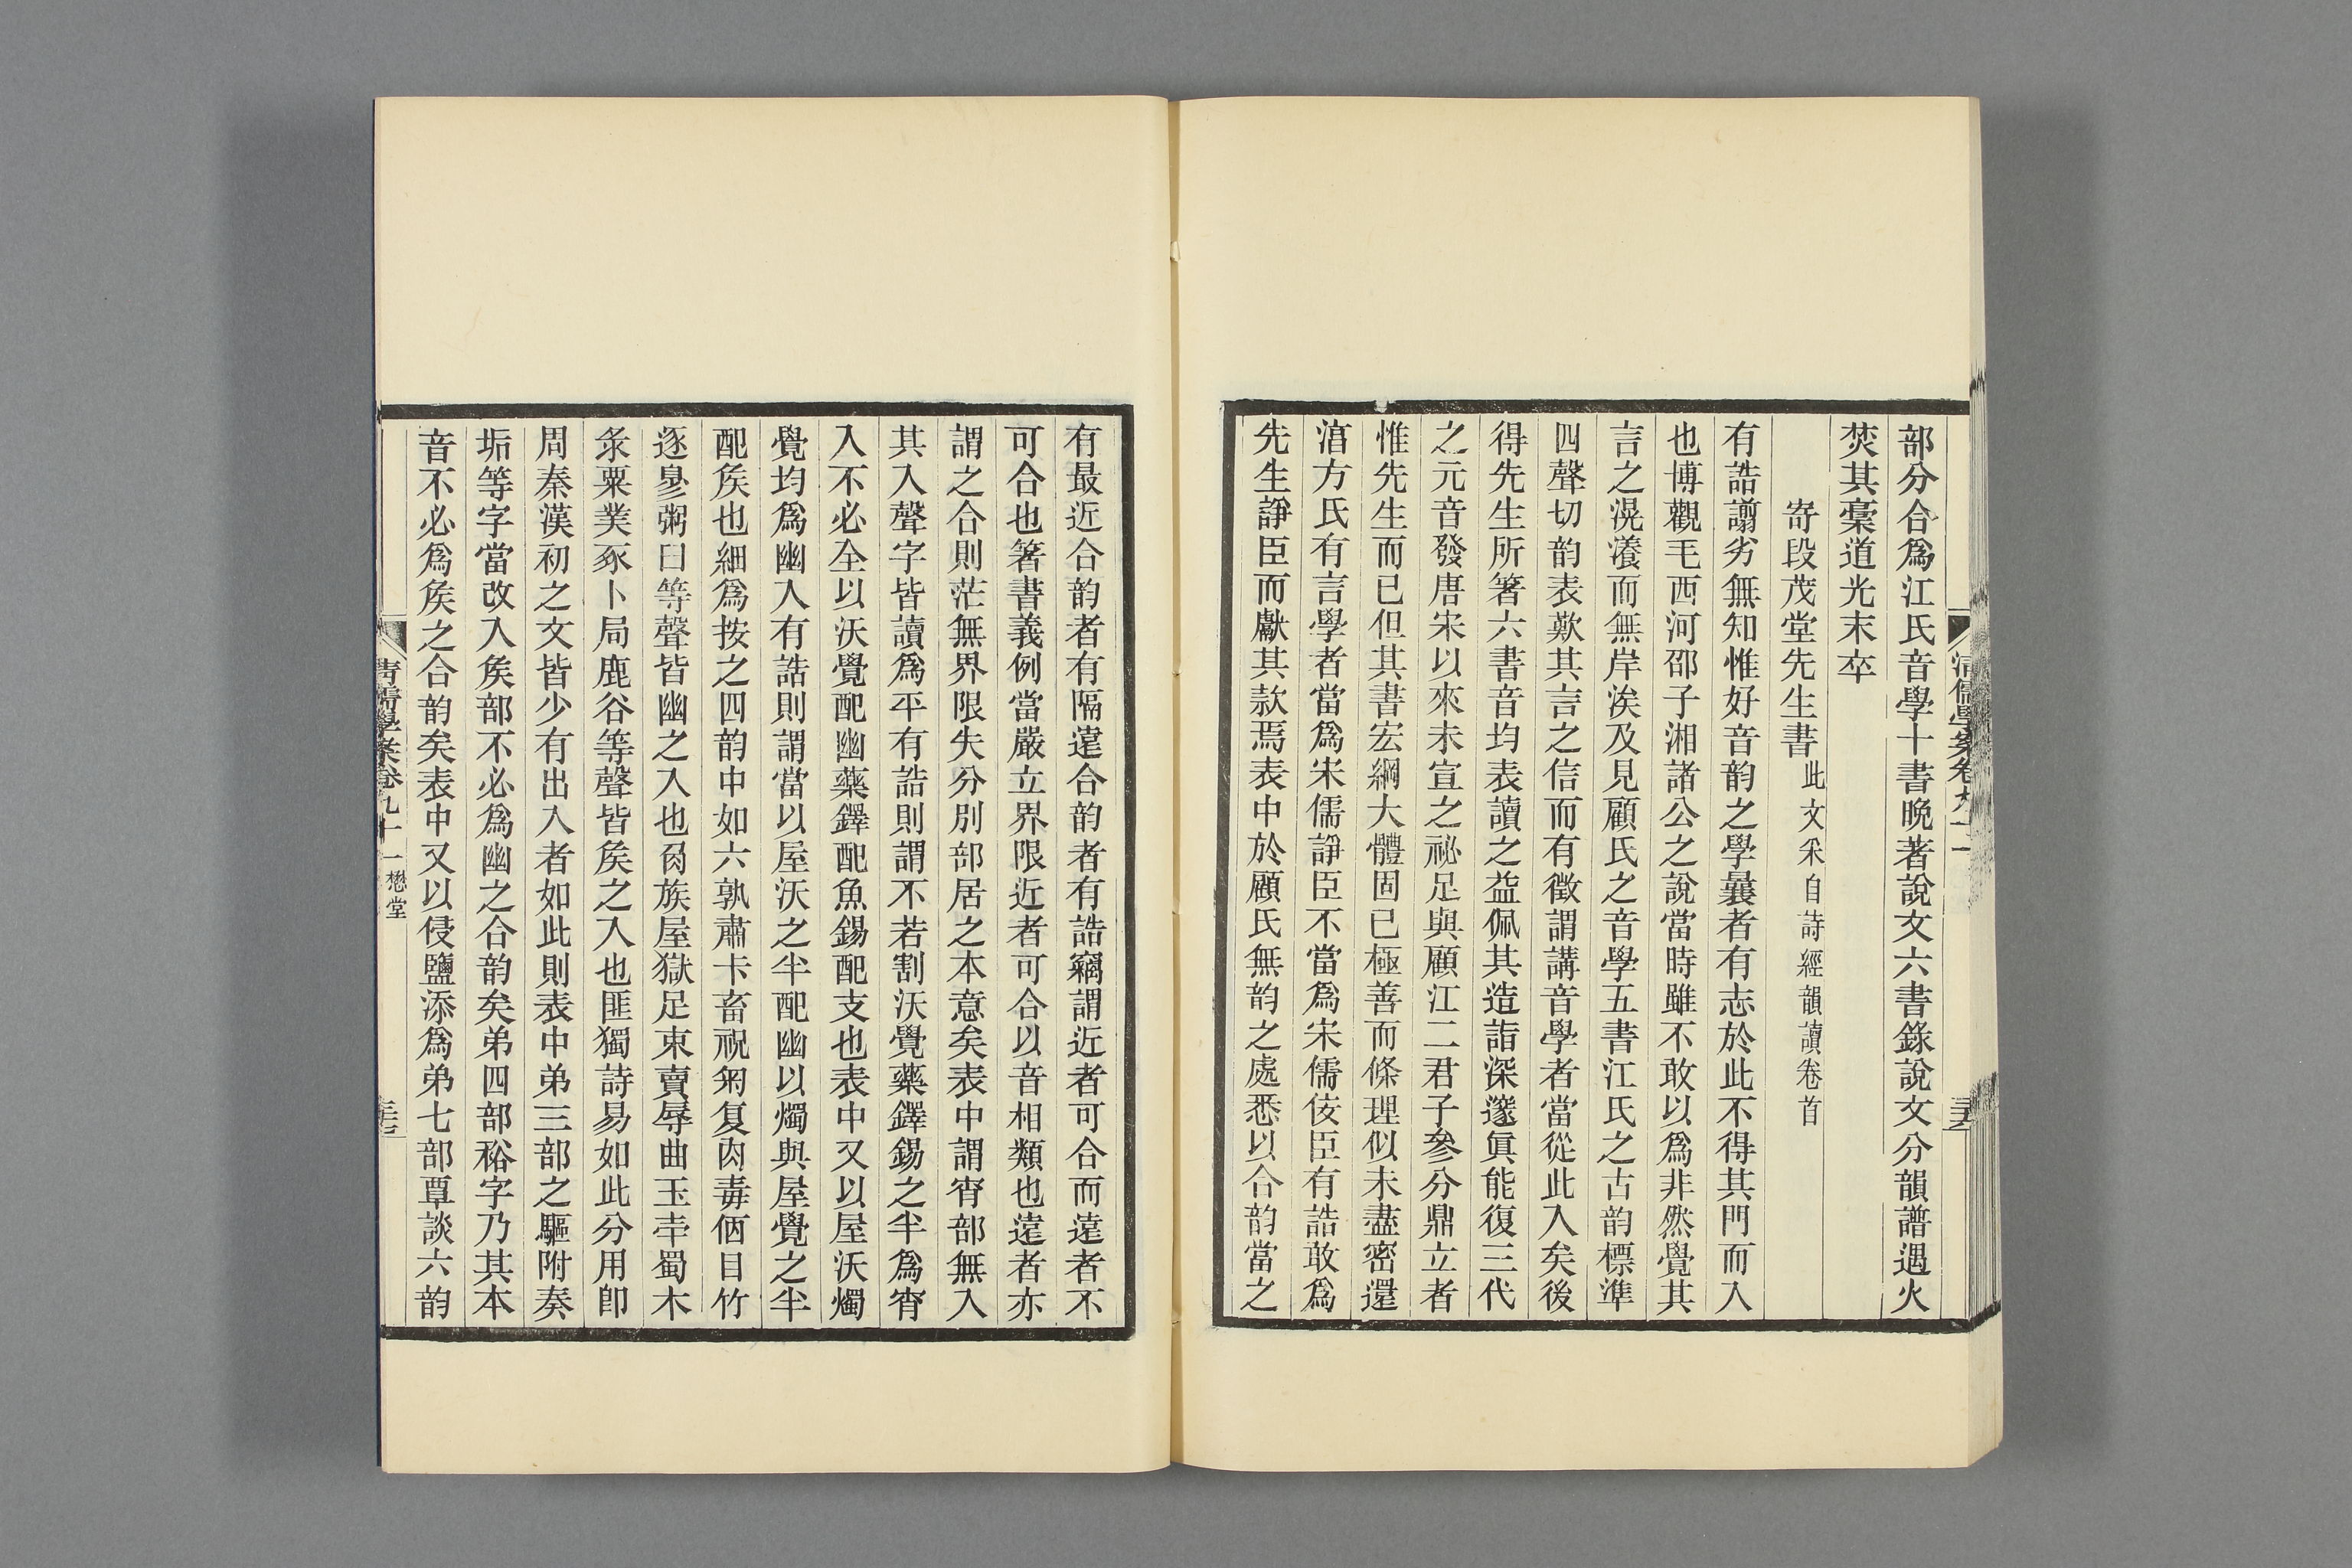 部分合爲江氏音學十書晚著說文六書錄說文分韻譜遇火
焚其稾道光末卒
寄段茂堂先生書此文采自詩經韻讀卷首
有誥譾劣無知惟好音韵之學曩者有志於此不得其門而入
也博觀毛西河邵子湘諸公之說當時雖不敢以爲非然覺其
言之滉瀁而無岸涘及見顧氏之音學五書江氏之古韵標準
四聲切韵表歎其言之信而有徵謂講音學者當從此入矣後
得先生所箸六書音均表讀之益佩其造詣深邃眞能復三代
之元音發唐宋以來未宣之祕足與顧江二君子參分鼎立者
惟先生而已但其書宏綱大體固已極善而條理似未盡密還
淯方氏有言學者當爲宋儒諍臣不當爲宋儒佞臣有誥敢爲
先生諍臣而獻其款焉表中於顧氏無韵之處悉以合韵當之
有最近合韵者有隔遠合韵者有誥竊謂近者可合而遠者不
可合也箸書義例當嚴立界限近者可合以音相類也遠者亦
謂之合則茫無界限失分別部居之本意矣表中謂宵部無入
其入聲字皆讀爲平有誥則謂不若割沃覺藥鐸錫之半爲宵
入不必全以沃覺配幽藥鐸配魚錫配支也表中又以屋沃燭
覺均爲幽入有誥則謂當以屋沃之半配幽以燭與屋覺之半
配矦也細爲按之四韵中如六孰肅尗畜祝匊复肉毒佰目竹
逐翏粥臼等聲皆幽之入也角族屋獄足束賣辱曲玉𡴘蜀木
彔粟菐豖卜局鹿谷等聲皆矦之入也匪獨詩易如此分用卽
周秦漢初之文皆少有出入者如此則表中弟三部之驅附奏
垢等字當改入矦部不必爲幽之合韵矣弟四部裕字乃其本
音不必爲矦之合韵矣表中又以侵鹽添爲弟七部覃談六韵
清儒學案卷九十一
懋堂